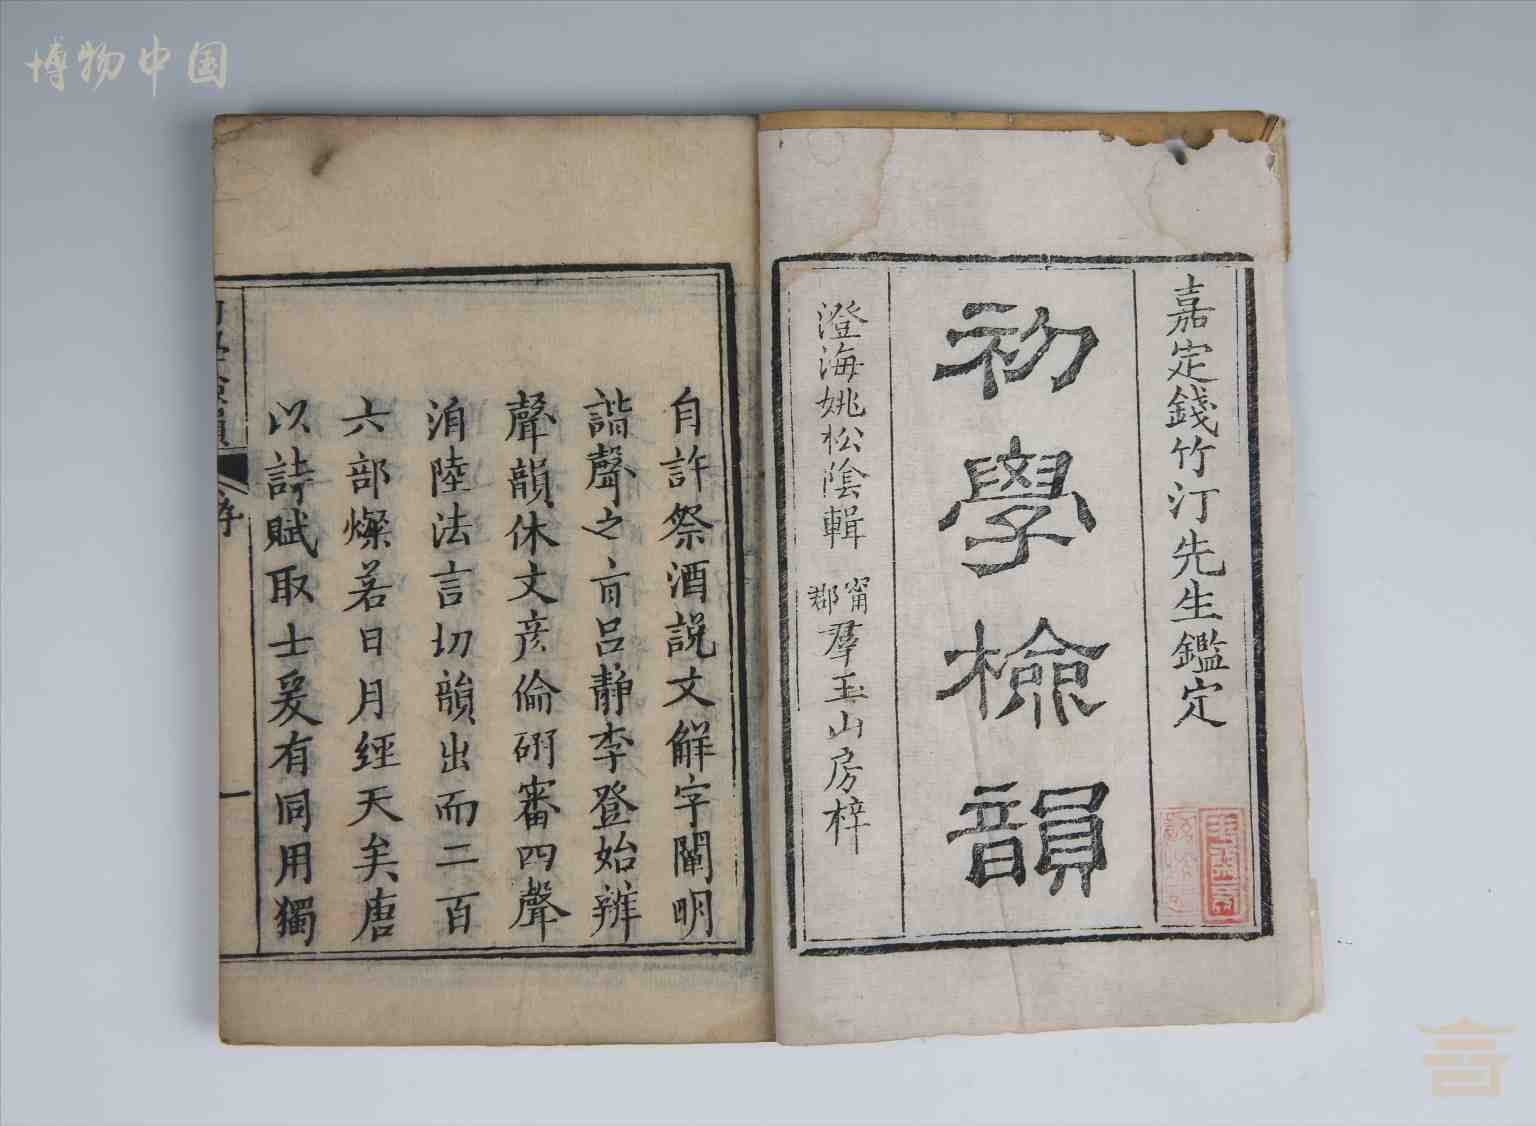 博物中国
嘉定錢竹汀先生鑑定
初學檢韻
澄海姚松陰輯
甯郡
羣玉山房梓
自許祭酒説文解字闡明
諧聲之𭥍吕静李登始辨
聲韻休文彦倫硏審四聲
洎陸法言切韻出而二百
六部燦若日月經天矣唐
以詩賦取士爰有同用獨
序
一